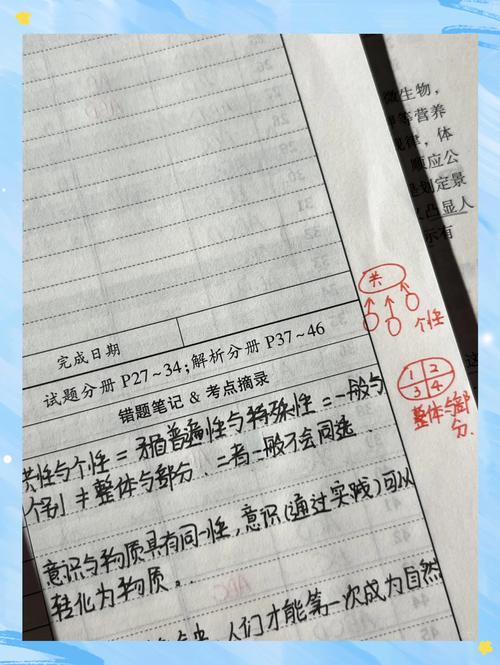 微生物，
等营养
律，体
顺应公
划定景
凸显人
示有
完成日期
试题分册 P27~34；解析分册 P37~46
错题笔记 & 考点摘录
共性与个性 = 矛盾普遍性与特殊性 = 一般与
个别 ≠ 整体与部分．二者一般不会同选．
意识与物质具有同一性，意识（通过实践）可以
转化为物质．
人们才能第一次成为自然
共
个性
1 2
3 4
整体与部
分．